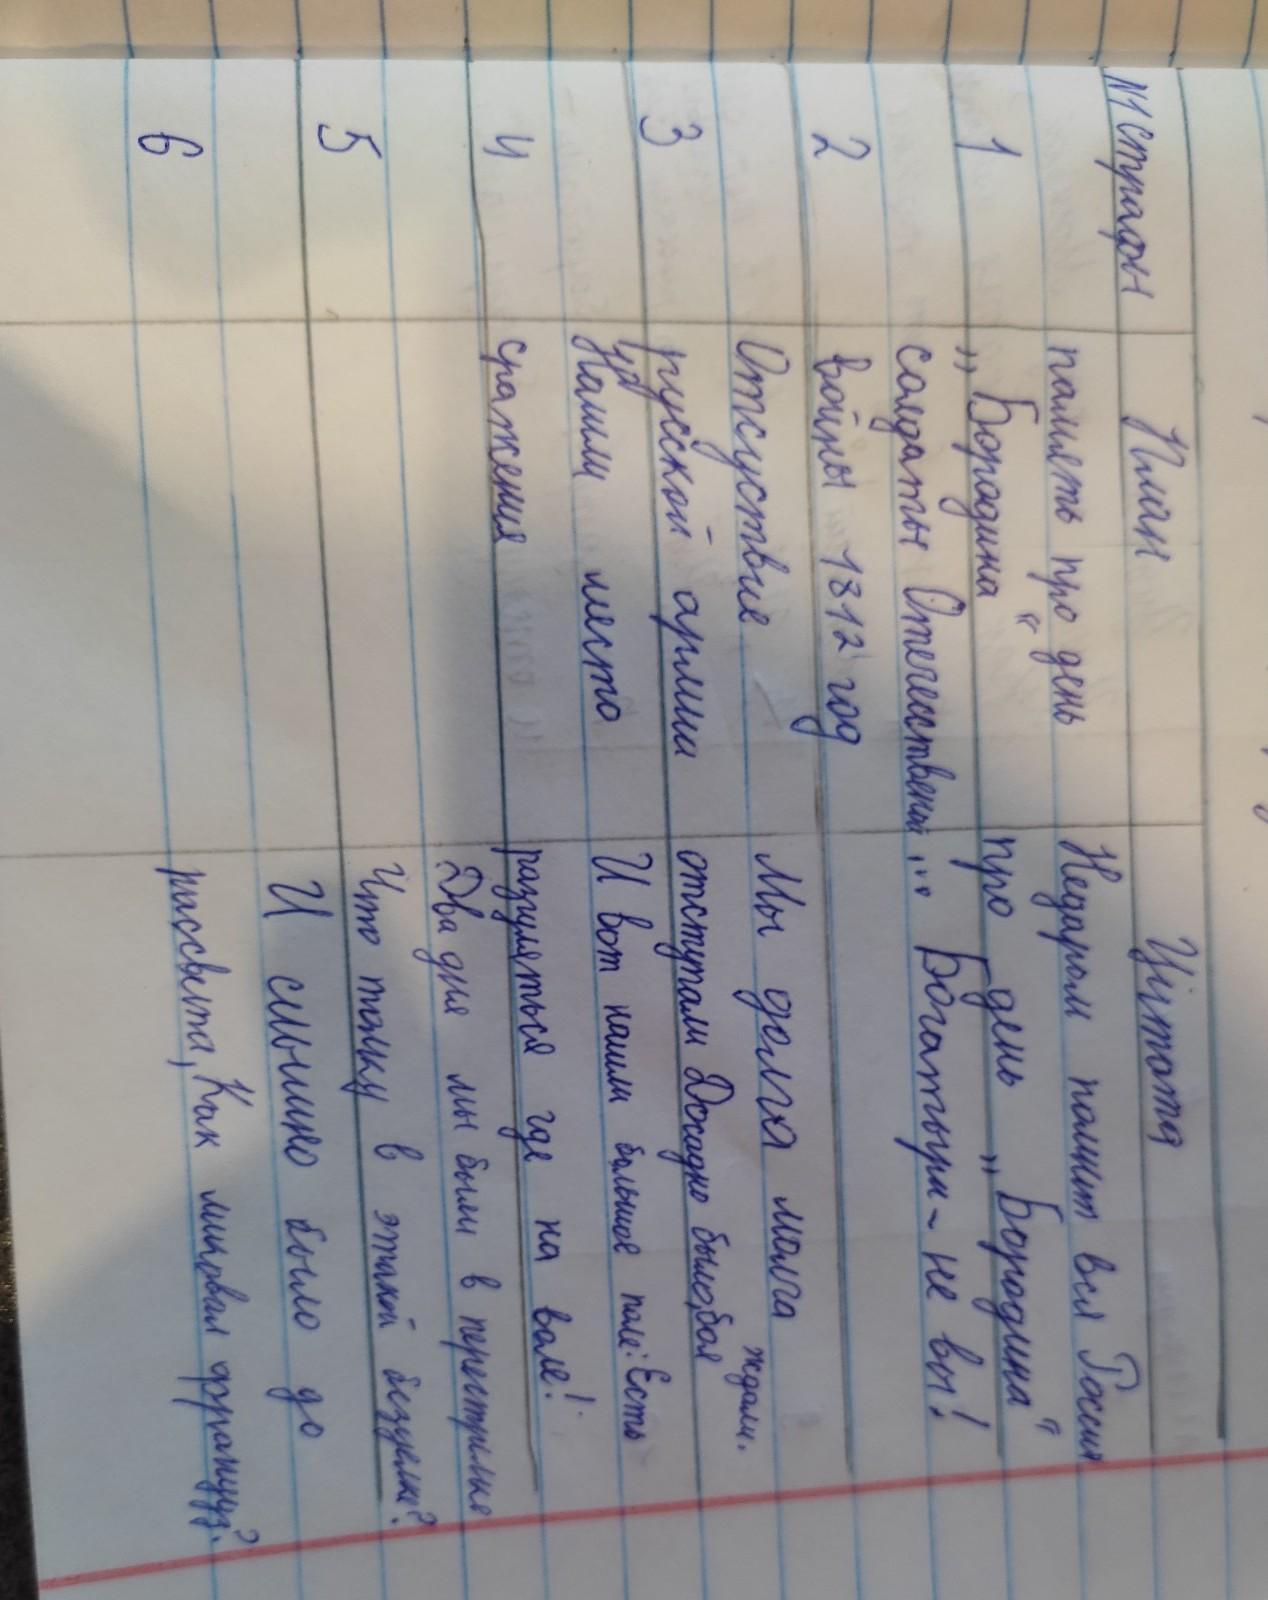 № строфы План Цитата
1 память про день „Бородина“ Недаром помнит вся Россия про день „Бородина“
2 солдаты Отечественой войны 1812 год ... Богатыри - не вы!
3 Отсуствие русской армии Мы долга молга отступам Досадно было, боя ждали.
4 Нашли место сражения И вот нашли большое поле: Есть разгуляться где на воле!
5 Два дня мы были в перестрелке Что толку в этакой безделке?
6 И слышно было до рассвета, Как ликовал француз.